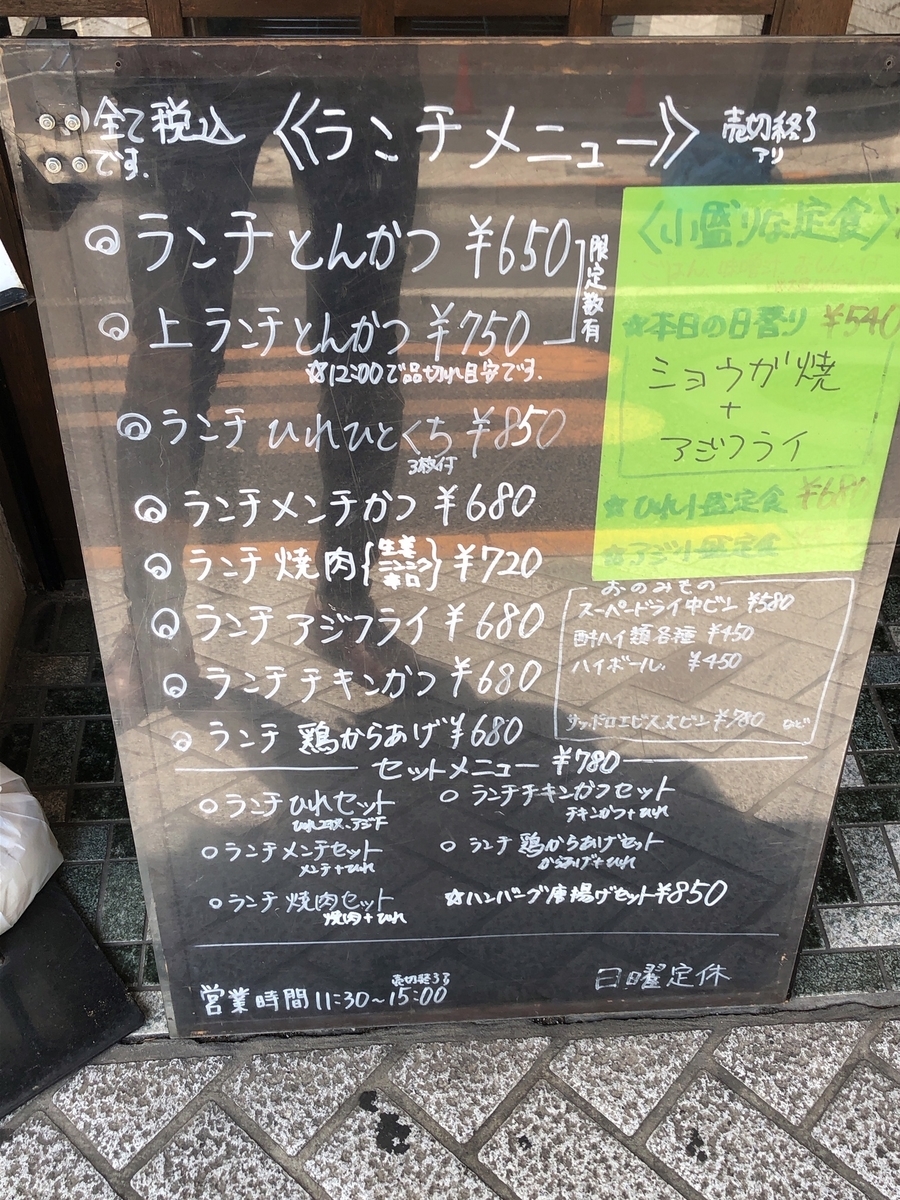 全て税込です。
《ランチメニュー》
売切終了アリ
◎ランチとんかつ ¥650
◎上ランチとんかつ ¥750
限定数有
☆12:00で品切れ目安です。
◎ランチ ひれひとくち ¥850
3枚付
◎ランチメンチかつ ¥680
◎ランチ 焼肉{生姜 ニンニク 辛口} ¥720
◎ランチ アジフライ ¥680
◎ランチ チキンかつ ¥680
◎ランチ 鶏からあげ ¥680
〈小盛りな定食〉
★本日の日替り ¥540
ショウガ焼
+
アジフライ
★ひれ小盛定食 ¥680
★アジ小盛定食
おのみもの
スーパードライ中ビン ¥580
酎ハイ類各種 ¥450
ハイボール. ¥450
サッポロエビス大ビン ¥780 など
セットメニュー ¥780
○ランチひれセット
○ランチメンチセット
メンチ+ひれ
○ランチ 焼肉セット
焼肉+ひれ
○ランチチキンかつセット
チキンかつ+ひれ
○ランチ 鶏からあげセット
からあげ+ひれ
☆ハンバーグ唐揚げセット¥850
営業時間 11:30~15:00
日曜定休